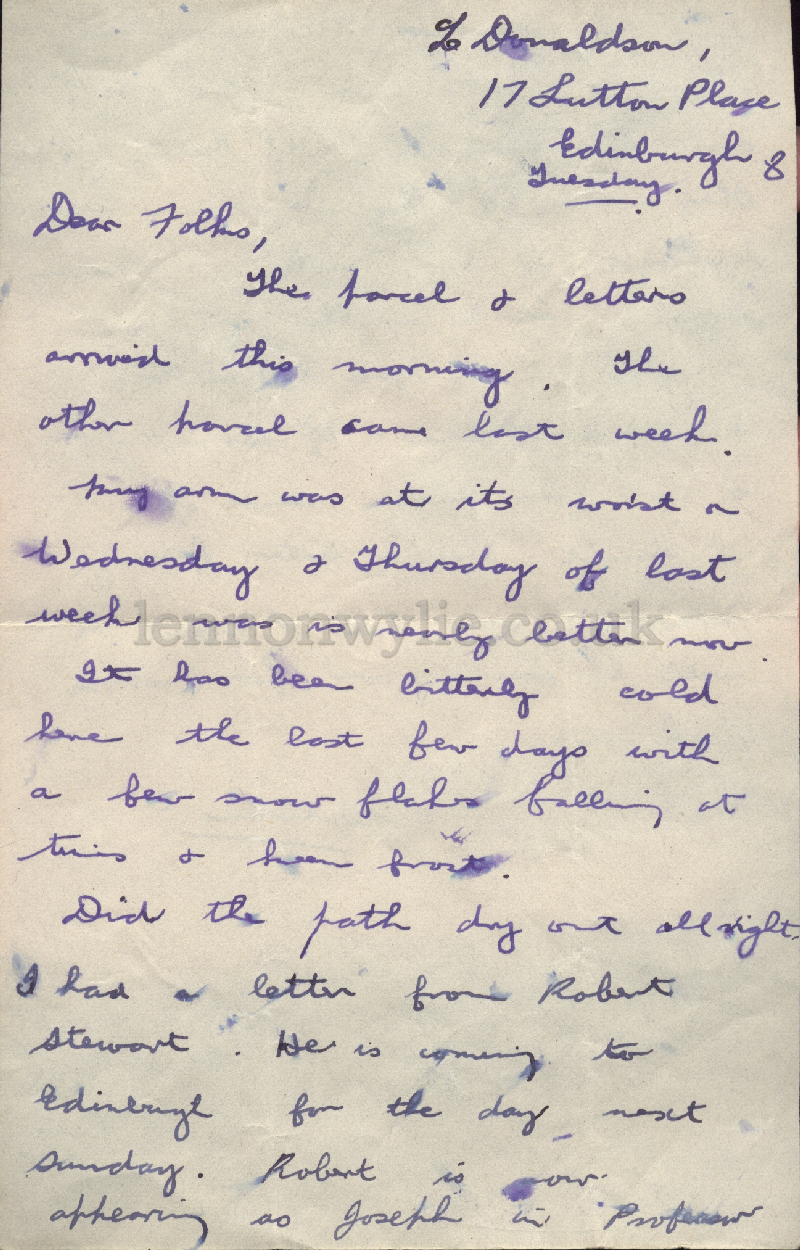 ℅ Donaldson,
17 Lutton Place
Edinburgh 8
Tuesday.
Dear Folks,
The parcel & letters
arrived this morning. The
other parcel came last week.
My arm was at its worst on
Wednesday & Thursday of last
week was is nearly better now.
It has been bitterly cold
here the last few days with
a few snow flakes falling at
times & keen frost.
Did the path dry out all right.
I had a letter from Robert
Stewart. He is coming to
Edinburgh for the day next
Sunday. Robert is now
appearing as Joseph in Professor
lennonwylie.co.uk